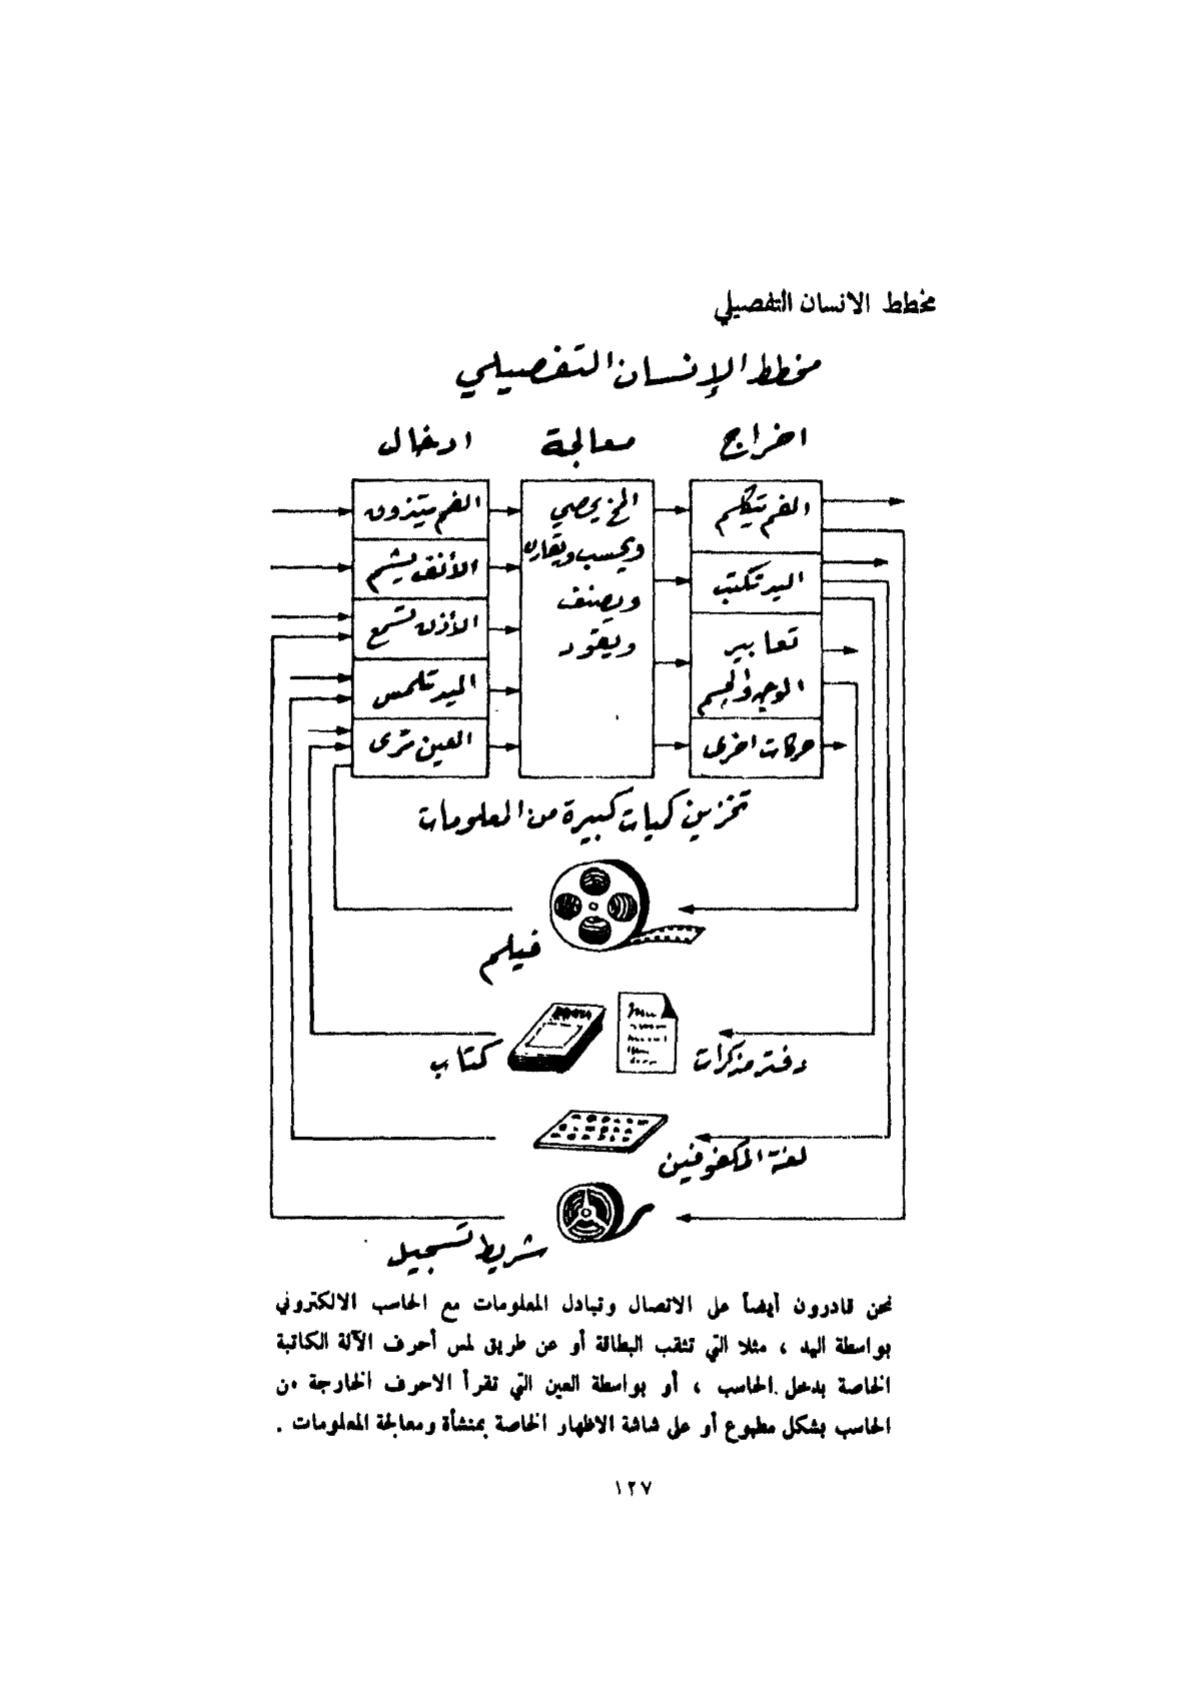 مخطط الانسان التفصيلي
مخطط الإنسان التفصيلي
ادخال
معالجة
اخراج
الفم يتذوق
الأنف يشم
الأذن تسمع
اليد تلمس
العين ترى
المخ يحصي
ويحسب ويقارن
ويصنف
ويقود
الفم يتكلم
اليد تكتب
تعابير
الوجه والجسم
حركات اخرى
تخزين كميات كبيرة من المعلومات
فيلم
كتاب
دفتر مذكرات
لغة المكفوفين
شريط تسجيل
نحن قادرون أيضاً على الاتصال وتبادل المعلومات مع الحاسب الالكتروني
بواسطة اليد ، مثلا التي تثقب البطاقة أو عن طريق لمس أحرف الآلة الكاتبة
الخاصة بدخل الحاسب ، أو بواسطة العين التي تقرأ الاحرف الخارجة من
الحاسب بشكل مطبوع أو على شاشة الاظهار الخاصة بمنشأة ومعالجة المعلومات .
١٢٧